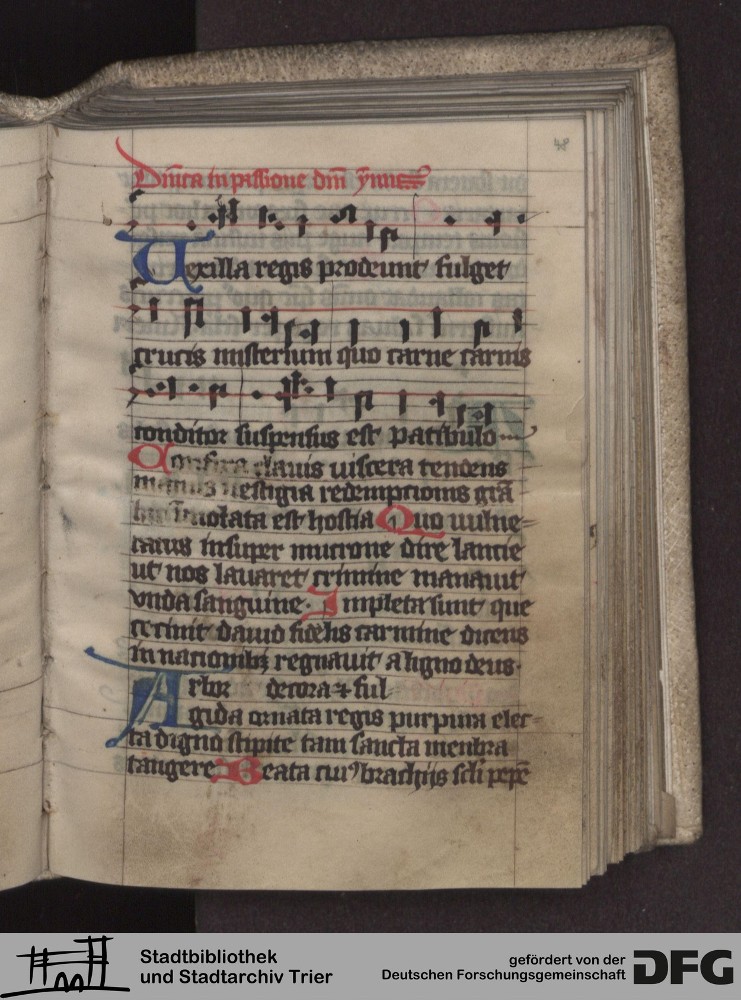 48
Dnica in passione dni ymnus
Uexilla regis prodeunt fulget
crucis misterium quo carne carnis
conditor suspensus est patibulo
Confixa clauis uiscera tendens
manus uestigia redemptionis gra
hic inmolata est hostia Quo uulne=
ratus insuper mucrone dire lancie
ut nos lauaret crimine manauit
vnda sanguine. Impleta sunt que
cecinit dauid fidelis carmine dicens
in nacionibꝫ regnauit a ligno deus.
Arbor decora ⁊ ful
gida ornata regis purpura elec=
ta digno stipite tam sancta menbra
tangere Beata cuiꝰ brachijs scli
Stadtbibliothek
und Stadtarchiv Trier
gefördert von der
Deutschen Forschungsgemeinschaft
DFG